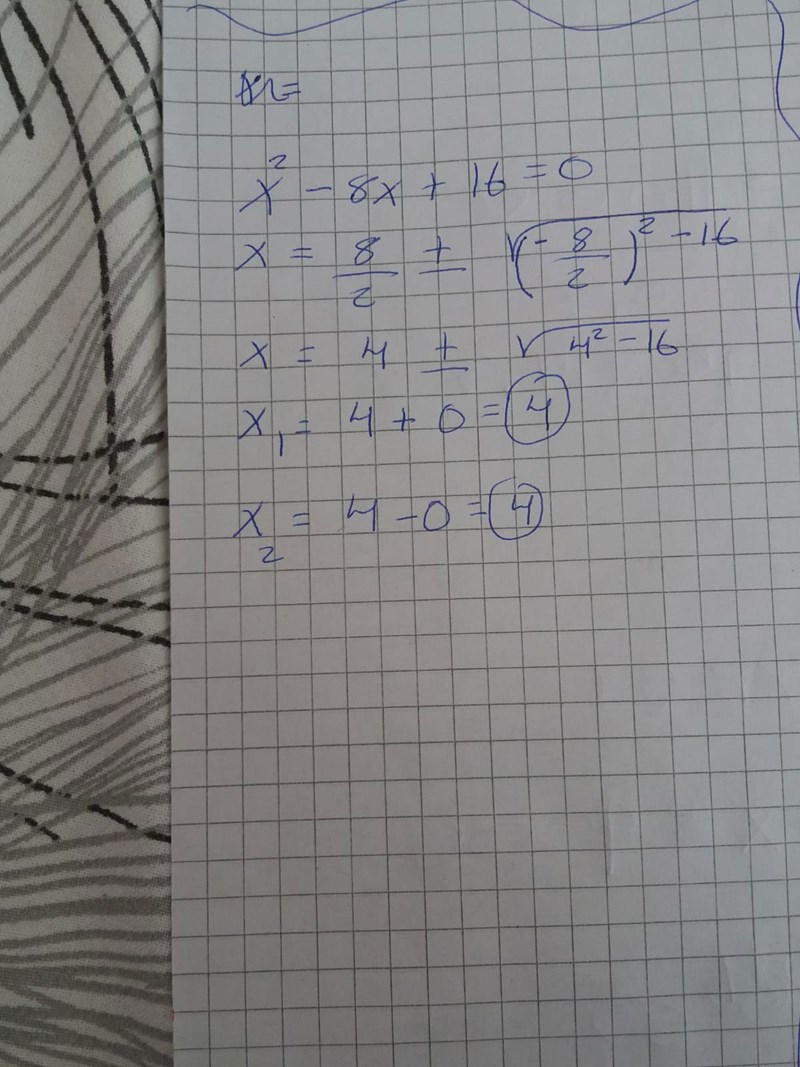 x² - 8x + 16 = 0
x = 8/2 ± √((-8/2)² - 16)
x = 4 ± √(4² - 16)
x₁ = 4 + 0 = 4
x₂ = 4 - 0 = 4